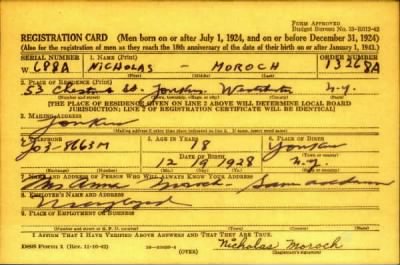 FORM APPROVED
REGISTRATION CARD (Men born on or after July 1, 1924, and on or before December 31, 1924)
(Also for the registration of men as they reach the 18th anniversary of the date of their birth on or after January 1, 1943.)
SERIAL NUMBER 1. NAME (Print) ORDER NUMBER
W 688A NICHOLAS - MOROCH 13268A
(First) (Middle) (Last)
2. PLACE OF RESIDENCE (Print)
53 St. Yonkers N.Y.
[THE PLACE OF RESIDENCE GIVEN ON LINE 2 ABOVE WILL DETERMINE LOCAL BOARD
JURISDICTION; LINE 2 OF REGISTRATION CERTIFICATE WILL BE IDENTICAL]
3. MAILING ADDRESS
Yonkers
4. TELEPHONE 5. AGE IN YEARS 6. PLACE OF BIRTH
18 Yonkers
DATE OF BIRTH
12 19 1928 N.Y.
7. NAME AND ADDRESS OF PERSON WHO WILL ALWAYS KNOW YOUR ADDRESS
Mrs Anna Moroch - Same address
8. EMPLOYER'S NAME AND ADDRESS
9. PLACE OF EMPLOYMENT OR BUSINESS
I AFFIRM THAT I HAVE VERIFIED ABOVE ANSWERS AND THAT THEY ARE TRUE.
DSS Form 1 (Rev. 11-16-42) (OVER) Nicholas Moroch